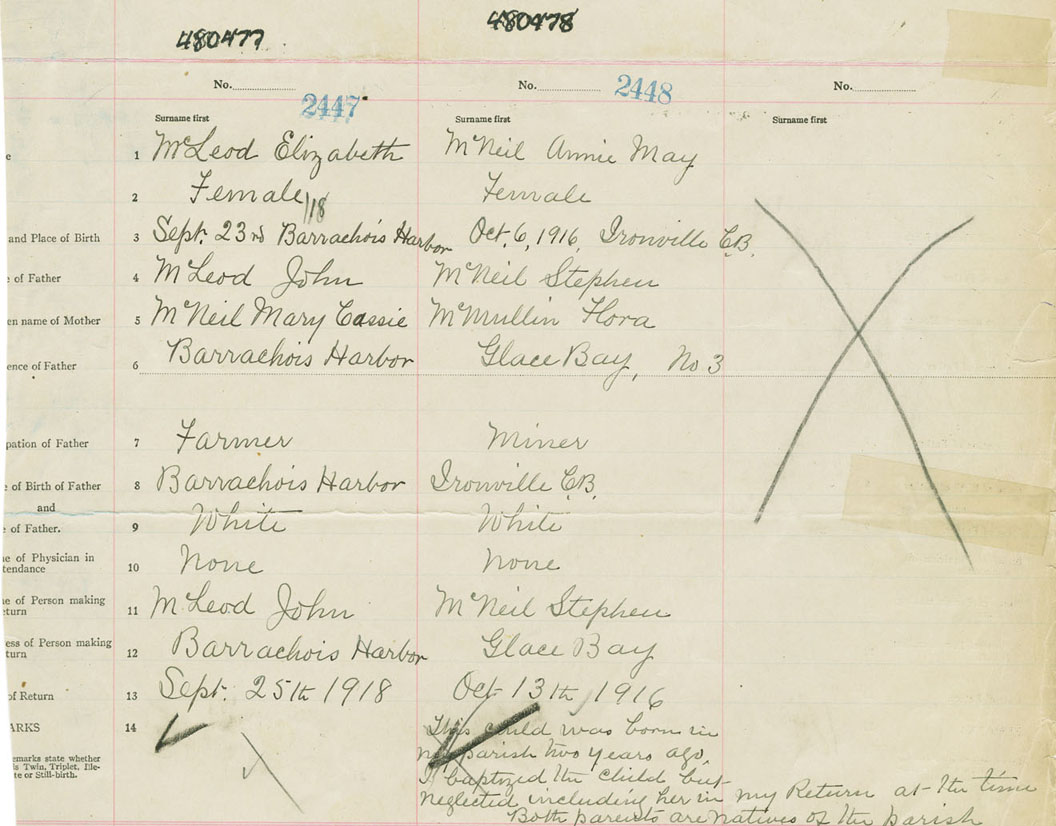 480477 480478
No. 2447 No. 2448 No.
Surname first Surname first Surname first
1 McLeod Elizabeth McNeil Annie May
2 Female Female
/18
and Place of Birth 3 Sept. 23rd Barrachois Harbor Oct. 6, 1916, Ironville C.B.
of Father 4 McLeod John McNeil Stephen
en name of Mother 5 McNeil Mary Cassie McMullin Flora
ence of Father 6 Barrachois Harbor Glace Bay, No 3
pation of Father 7 Farmer Miner
e of Birth of Father 8 Barrachois Harbor Ironville C.B.
and
of Father. 9 White White
e of Physician in
tendance 10 None None
e of Person making
eturn 11 McLeod John McNeil Stephen
ess of Person making
turn 12 Barrachois Harbor Glace Bay
of Return 13 Sept. 25th 1918 Oct 13th, 1916
ARKS 14
emarks state whether
is Twin, Triplet, Ille-
te or Still-birth.
This child was born in
my parish two years ago,
I baptized the child but
neglected including her in my Return at the time
Both parents are natives of the parish